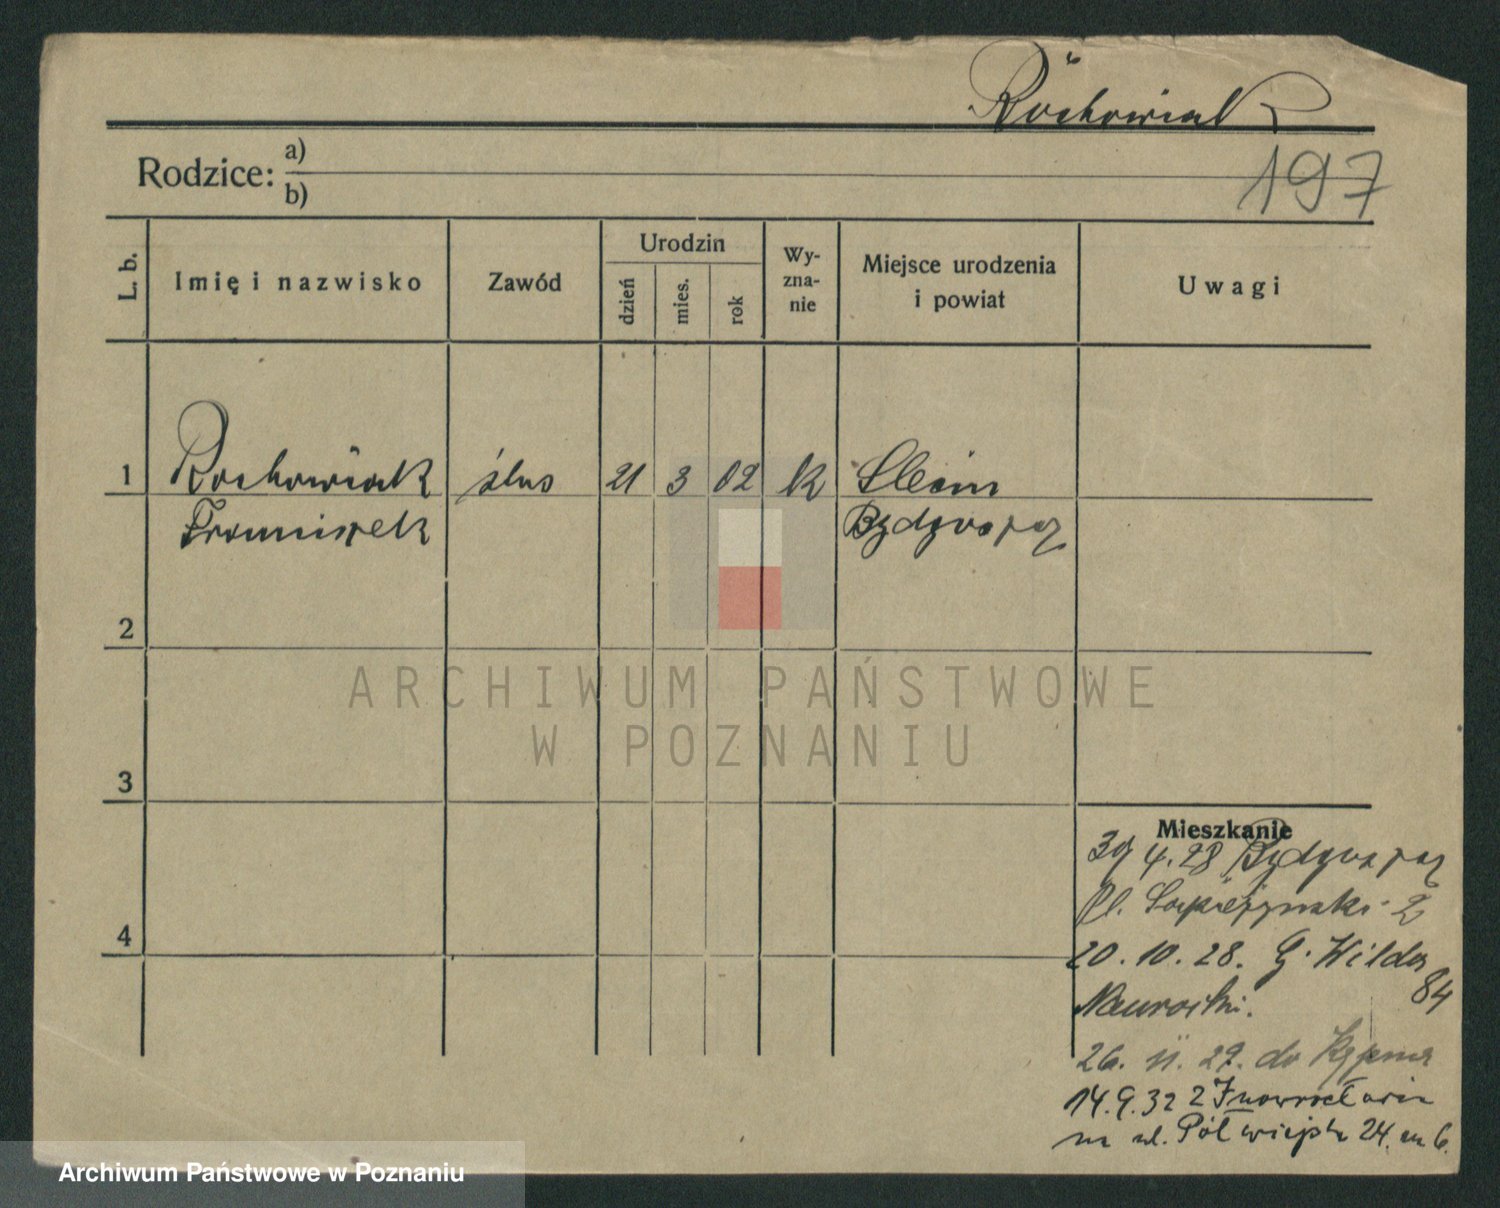 Rochowiak
Rodzice: a)
b)
197
L. b.
Imię i nazwisko
Zawód
Urodzin
dzień
mies.
rok
Wy-
zna-
nie
Miejsce urodzenia
i powiat
Uwagi
1
Rochowiak ślus 21 3 02 k
Franciszek Bydgoszcz
2
3
4
ARCHIWUM PAŃSTWOWE
W POZNANIU
Mieszkanie
4.28 Bydgoszcz
Pl. 2
20.10.28. G. Wilda
84
Nawrocki.
26. 11. 29. do
14.9.32 z Inowrocławia
na ul. Półwiejska 24. m 6.
Archiwum Państwowe w Poznaniu